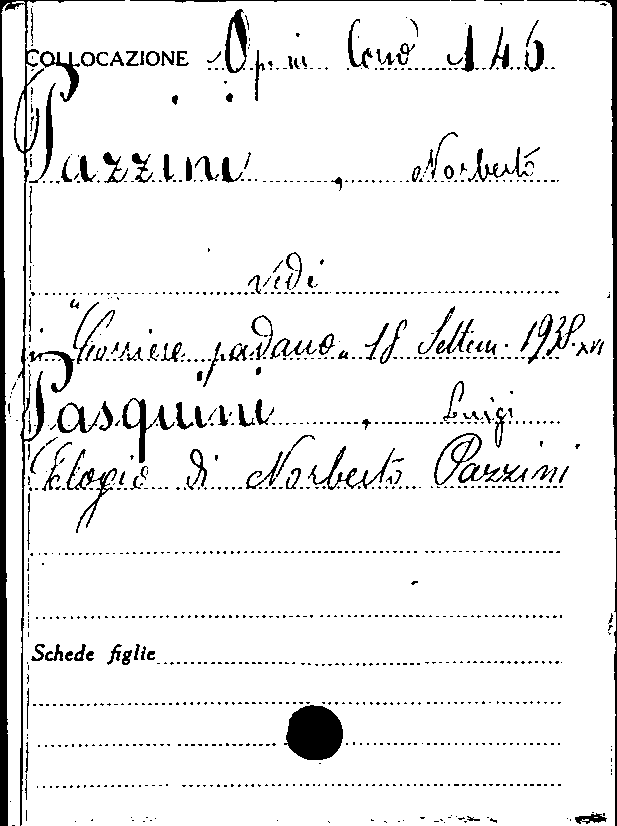 COLLOCAZIONE Op. in Cons 146
Pazzini, Norberto
vedi
in "Corriere padano" 18 Settem. 1938. XVI
Pasquini, Luigi
Elogio di Norberto Pazzini
Schede figlie